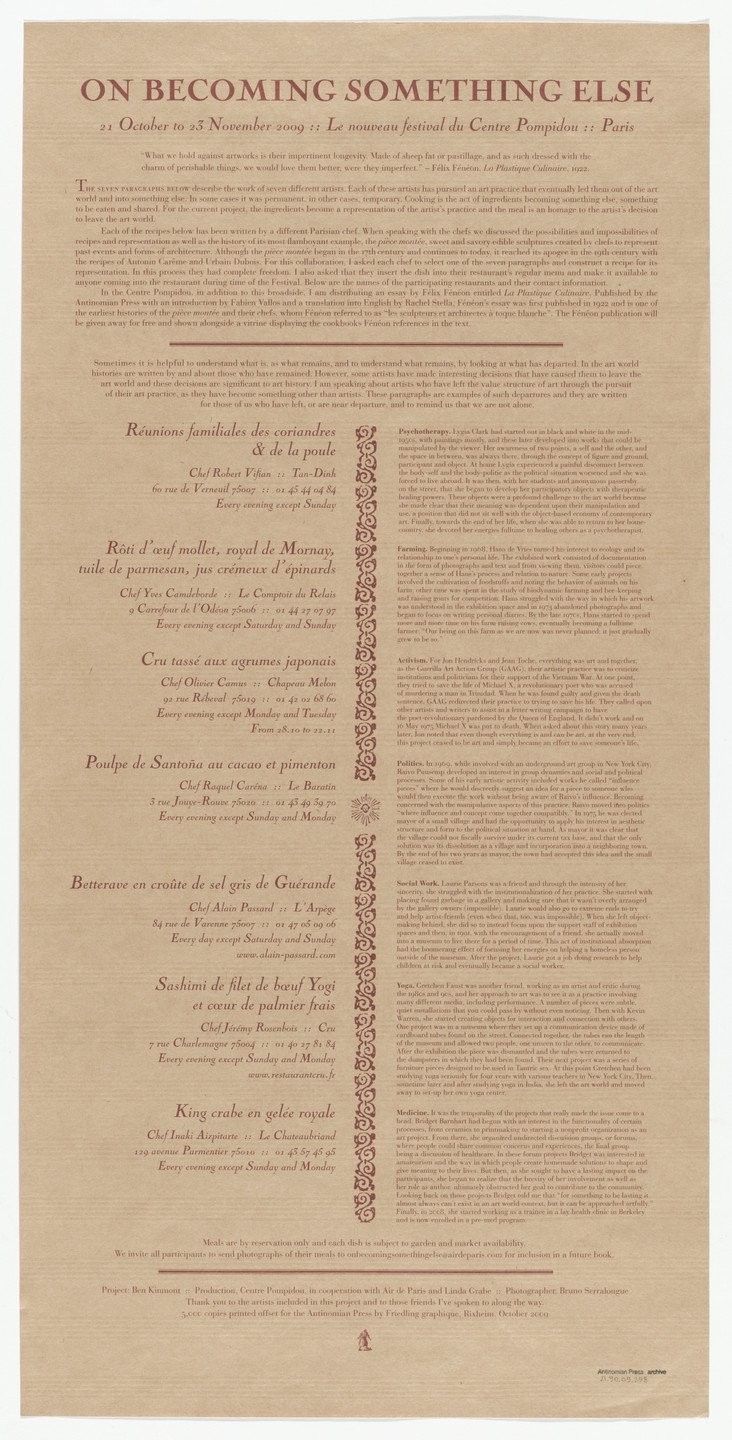 ON BECOMING SOMETHING ELSE
21 October to 23 November 2009 :: Le nouveau festival du Centre Pompidou :: Paris
“What we hold against artworks is their impertinent longevity. Made of sheep fat or pastillage, and as such dressed with the
charm of perishable things, we would love them better, were they imperfect.” – Félix Fénéon, La Plastique Culinaire, 1922.
The seven paragraphs below describe the work of seven different artists. Each of these artists has pursued an art practice that eventually led them out of the art
world and into something else. In some cases it was permanent, in other cases, temporary. Cooking is the act of ingredients becoming something else, something
to be eaten and shared. For the current project, the ingredients become a representation of the artist’s practice and the meal is an homage to the artist’s decision
to leave the art world.
Each of the recipes below has been written by a different Parisian chef. When speaking with the chefs we discussed the possibilities and impossibilities of
recipes and representation as well as the history of its most flamboyant example, the pièce montée, sweet and savory edible sculptures created by chefs to represent
past events and forms of architecture. Although the pièce montée began in the 17th century and continues to today, it reached its apogee in the 19th century with
the recipes of Antonin Carême and Urbain Dubois. For this collaboration, I asked each chef to select one of the seven paragraphs and construct a recipe for its
representation. In this process they had complete freedom. I also asked that they insert the dish into their restaurant’s regular menu and make it available to
anyone coming into the restaurant during time of the Festival. Below are the names of the participating restaurants and their contact information.
In the Centre Pompidou, in addition to this broadside, I am distributing an essay by Félix Fénéon entitled La Plastique Culinaire. Published by the
Antinomian Press with an introduction by Fabien Vallos and a translation into English by Rachel Stella, Fénéon’s essay was first published in 1922 and is one of
the earliest histories of the pièce montée and their chefs, whom Fénéon referred to as “les sculpteurs et architectes à toque blanche”. The Fénéon publication will
be given away for free and shown alongside a vitrine displaying the cookbooks Fénéon references in the text.
Sometimes it is helpful to understand what is, as what remains, and to understand what remains, by looking at what has departed. In the art world
histories are written by and about those who have remained. However, some artists have made interesting decisions that have caused them to leave the
art world and these decisions are significant to art history. I am speaking about artists who have left the value structure of art through the pursuit
of their art practice, as they have become something other than artists. These paragraphs are examples of such departures and they are written
for those of us who have left, or are near departure, and to remind us that we are not alone.
Réunions familiales des coriandres
& de la poule
Chef Robert Vifian :: Tan-Dinh
60 rue de Verneuil 75007 :: 01 45 44 04 84
Every evening except Sunday
Psychotherapy. Lygia Clark had started out in black and white in the mid-
1950s, with paintings mostly, and these later developed into works that could be
manipulated by the viewer. Her awareness of two points, a self and the other, and
the space in between, was always there, through the concept of figure and ground,
participant and object. At home Lygia experienced a painful disconnect between
the body-self and the body-politic as the political situation worsened and she was
forced to live abroad. It was then, with her students and anonymous passersby
on the street, that she began to develop her participatory objects with therapeutic
healing powers. These objects were a profound challenge to the art world because
she made clear that their meaning was dependent upon their manipulation and
use, a position that did not sit well with the object-based economy of contemporary
art. Finally, towards the end of her life, when she was able to return to her home-
country, she devoted her energies fulltime to healing others as a psychotherapist.
Rôti d’œuf mollet, royal de Mornay,
tuile de parmesan, jus crémeux d’épinards
Chef Yves Camdeborde :: Le Comptoir du Relais
9 Carrefour de l’Odéon 75006 :: 01 44 27 07 97
Every evening except Saturday and Sunday
Farming. Beginning in 1968, Hans de Vries turned his interest to ecology and its
relationship to one’s personal life. The exhibited work consisted of documentation
in the form of photographs and text and from viewing them, visitors could piece
together a sense of Hans’s process and relation to nature. Some early projects
involved the cultivation of foodstuffs and noting the behavior of animals on his
farm, other time was spent in the study of biodynamic farming and bee-keeping
and raising goats for competition. Hans struggled with the way in which his artwork
was understood in the exhibition space and in 1973 abandoned photographs and
began to focus on writing personal diaries. By the late 1970s, Hans started to spend
more and more time on his farm raising cows, eventually becoming a fulltime
farmer. “Our being on this farm as we are now was never planned; it just gradually
grew to be so.”
Cru tassé aux agrumes japonais
Chef Olivier Camus :: Chapeau Melon
92 rue Rébeval 75019 :: 01 42 02 68 60
Every evening except Monday and Tuesday
From 28.10 to 22.11
Activism. For Jon Hendricks and Jean Toche, everything was art and together,
as the Guerilla Art Action Group (GAAG), their artistic practice was to criticize
institutions and politicians for their support of the Vietnam War. At one point,
they tried to save the life of Michael X, a revolutionary poet who was accused
of murdering a man in Trinidad. When he was found guilty and given the death
sentence, GAAG redirected their practice to trying to save his life. They called upon
other artists and writers to assist in a letter writing campaign to have
the poet-revolutionary pardoned by the Queen of England. It didn’t work and on
16 May 1975 Michael X was put to death. When asked about this story many years
later, Jon noted that even though everything is and can be art, at the very end,
this project ceased to be art and simply became an effort to save someone’s life.
Poulpe de Santoña au cacao et pimenton
Chef Raquel Caréna :: Le Baratin
3 rue Jouye-Rouve 75020 :: 01 43 49 39 70
Every evening except Sunday and Monday
Politics. In 1969, while involved with an underground art group in New York City,
Raivo Puusemp developed an interest in group dynamics and social and political
processes. Some of his early artistic activity included works he called “influence
pieces” where he would discreetly suggest an idea for a piece to someone who
would then execute the work without being aware of Raivo’s influence. Becoming
concerned with the manipulative aspects of this practice, Raivo moved into politics
“where influence and concept come together compatibly.” In 1975 he was elected
mayor of a small village and had the opportunity to apply his interest in aesthetic
structure and form to the political situation at hand. As mayor it was clear that
the village could not fiscally survive under its current tax base, and that the only
solution was its dissolution as a village and incorporation into a neighboring town.
By the end of his two years as mayor, the town had accepted this idea and the small
village ceased to exist.
Betterave en croûte de sel gris de Guérande
Chef Alain Passard :: L’Arpège
84 rue de Varenne 75007 :: 01 47 05 09 06
Every day except Saturday and Sunday
www.alain-passard.com
Social Work. Laurie Parsons was a friend and through the intensity of her
sincerity, she struggled with the institutionalization of her practice. She started with
placing found garbage in a gallery and making sure that it wasn’t overly arranged
by the gallery owners (impossible). Laurie would also go to extreme ends to try
and help artist-friends (even when that, too, was impossible). When she left object-
making behind, she did so to instead focus upon the support staff of exhibition
spaces and then, in 1991, with the encouragement of a friend, she actually moved
into a museum to live there for a period of time. This act of institutional absorption
had the boomerang effect of focusing her energies on helping a homeless person
outside of the museum. After the project, Laurie got a job doing research to help
children at risk and eventually became a social worker.
Sashimi de filet de bœuf Yogi
et cœur de palmier frais
Chef Jérémy Rosenbois :: Cru
7 rue Charlemagne 75004 :: 01 40 27 81 84
Every evening except Sunday and Monday
www.restaurantcru.fr
Yoga. Gretchen Faust was another friend, working as an artist and critic during
the 1980s and 90s, and her approach to art was to see it as a practice involving
many different media, including performance. A number of pieces were subtle
quiet installations that you could pass by without even noticing. Then with Kevin
Warren, she started creating objects for interaction and connection with others.
One project was in a museum where they set up a communication device made of
cardboard tubes found on the street. Connected together, the tubes ran the length
of the museum and allowed two people, one unseen to the other, to communicate.
After the exhibition the piece was dismantled and the tubes were returned to
the dumpsters in which they had been found. Their next project was a series of
furniture pieces designed to be used in Tantric sex. At this point Gretchen had been
studying yoga seriously for four years with various teachers in New York City. Then,
sometime later and after studying yoga in India, she left the art world and moved
away to set-up her own yoga center.
King crabe en gelée royale
Chef Inaki Aizpitarte :: Le Chateaubriand
129 avenue Parmentier 75010 :: 01 43 57 45 95
Every evening except Sunday and Monday
Medicine. It was the temporality of the projects that really made the issue come to a
head. Bridget Barnhart had begun with an interest in the functionality of certain
processes, from ceramics to printmaking to starting a nonprofit organization as an
art project. From there, she organized undirected discussion groups, or forums,
where people could share common concerns and experiences, the final group
being a discussion of healthcare. In these forum projects Bridget was interested in
amateurism and the way in which people create homemade solutions to shape and
give meaning to their lives. But then, as she sought to have a lasting impact on the
participants, she began to realize that the brevity of her involvement as well as
her role as author, ultimately obstructed her goal to contribute to the community.
Looking back on those projects Bridget told me that “for something to be lasting it
almost always can’t exist in an art world context, but it can be approached artfully.”
Finally, in 2008, she started working as a trainee in a lay health clinic in Berkeley
and is now enrolled in a pre-med program.
Meals are by reservation only and each dish is subject to garden and market availability.
We invite all participants to send photographs of their meals to onbecomingsomethingelse@airdeparis.com for inclusion in a future book.
Project: Ben Kinmont :: Production, Centre Pompidou, in cooperation with Air de Paris and Linda Grabe :: Photographer, Bruno Serralongue
Thank you to the artists included in this project and to those friends I’ve spoken to along the way.
5,000 copies printed offset for the Antinomian Press by Friedling graphique, Rixheim, October 2009
Antinomian Press archive